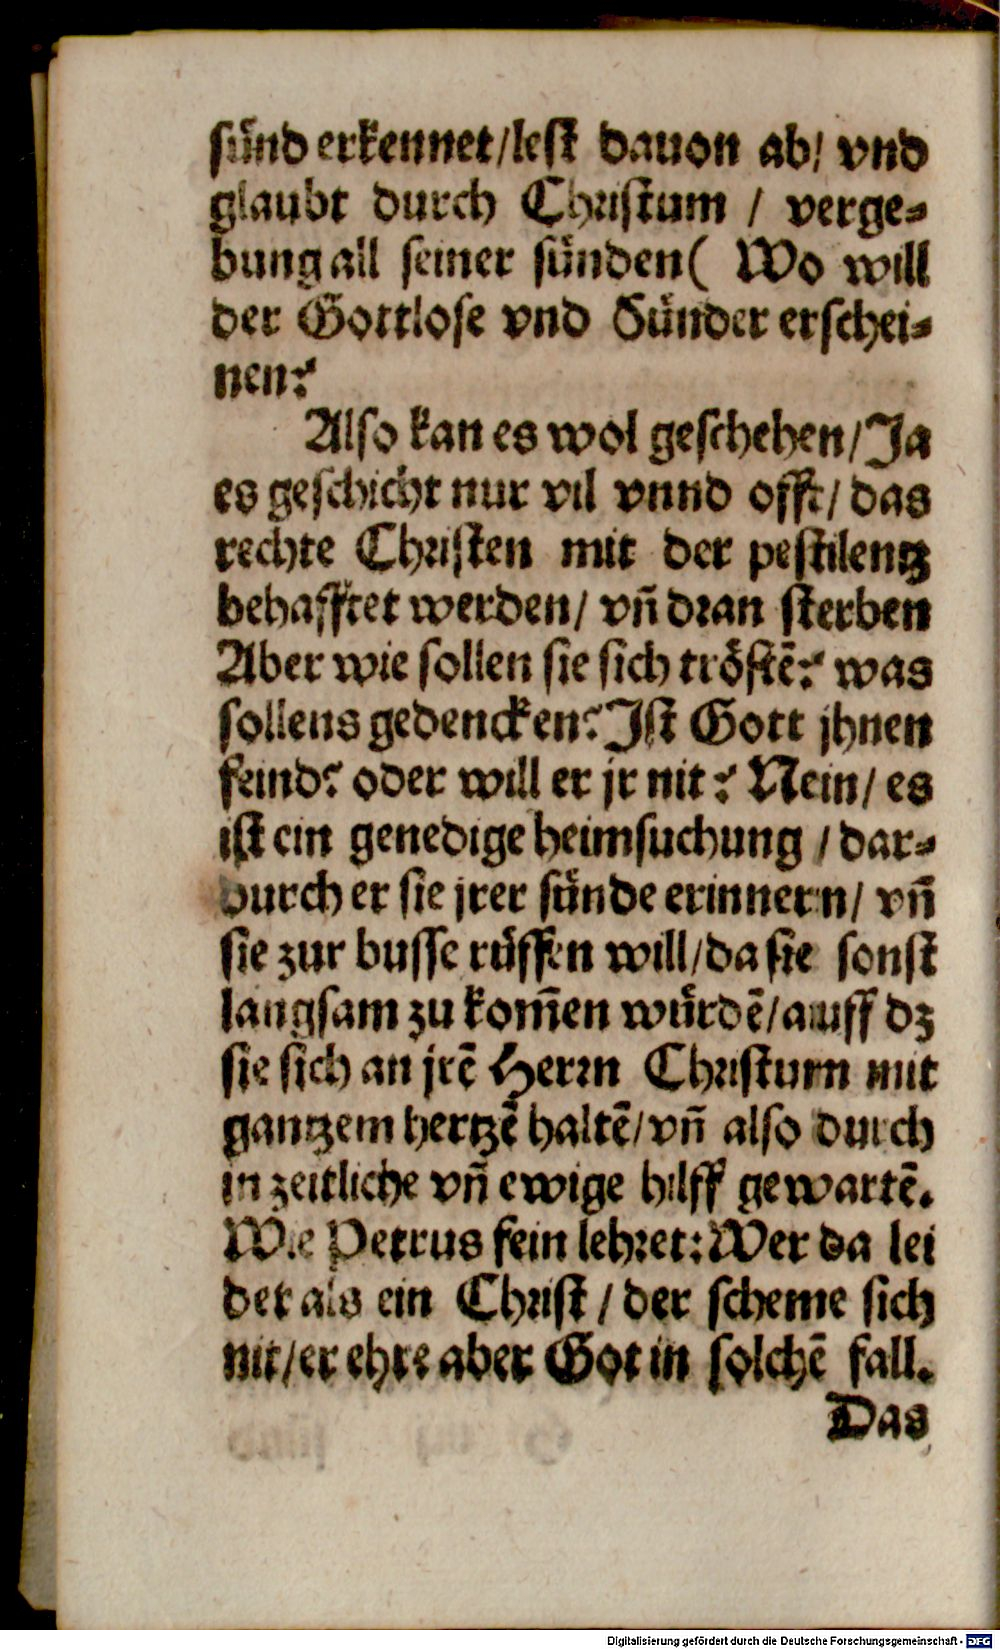 sünd erkennet/lest dauon ab/ vnd
glaubt durch Christum / verge⸗
bung all seiner sünden( Wo will
der Gottlose vnd Sünder erschei⸗
nen?
Also kan es wol geschehen/Ja
es geschicht nur vil vnnd offt/ das
rechte Christen mit der pestilentz
behafftet werden/ vñ dran sterben
Aber wie sollen sie sich tröstē? was
sollens gedencken? Ist Gott jhnen
feind? oder will er jr nit? Nein/ es
ist ein genedige heimsuchung / dar⸗
durch er sie jrer sünde erinnern/ vñ
sie zur busse rüffen will/da sie sonst
langsam zu kom̄en würdē/auff dz
sie sich an jrē Herrn Christum mit
gantzem hertzē haltē/vñ also durch
in zeitliche vñ ewige hilff gewartē.
Wie Petrus fein lehret: Wer da lei
det als ein Christ / der scheme sich
nit/er ehre aber Got in solchē fall.
Das
Digitalisierung gefördert durch die Deutsche Forschungsgemeinschaft - DFG